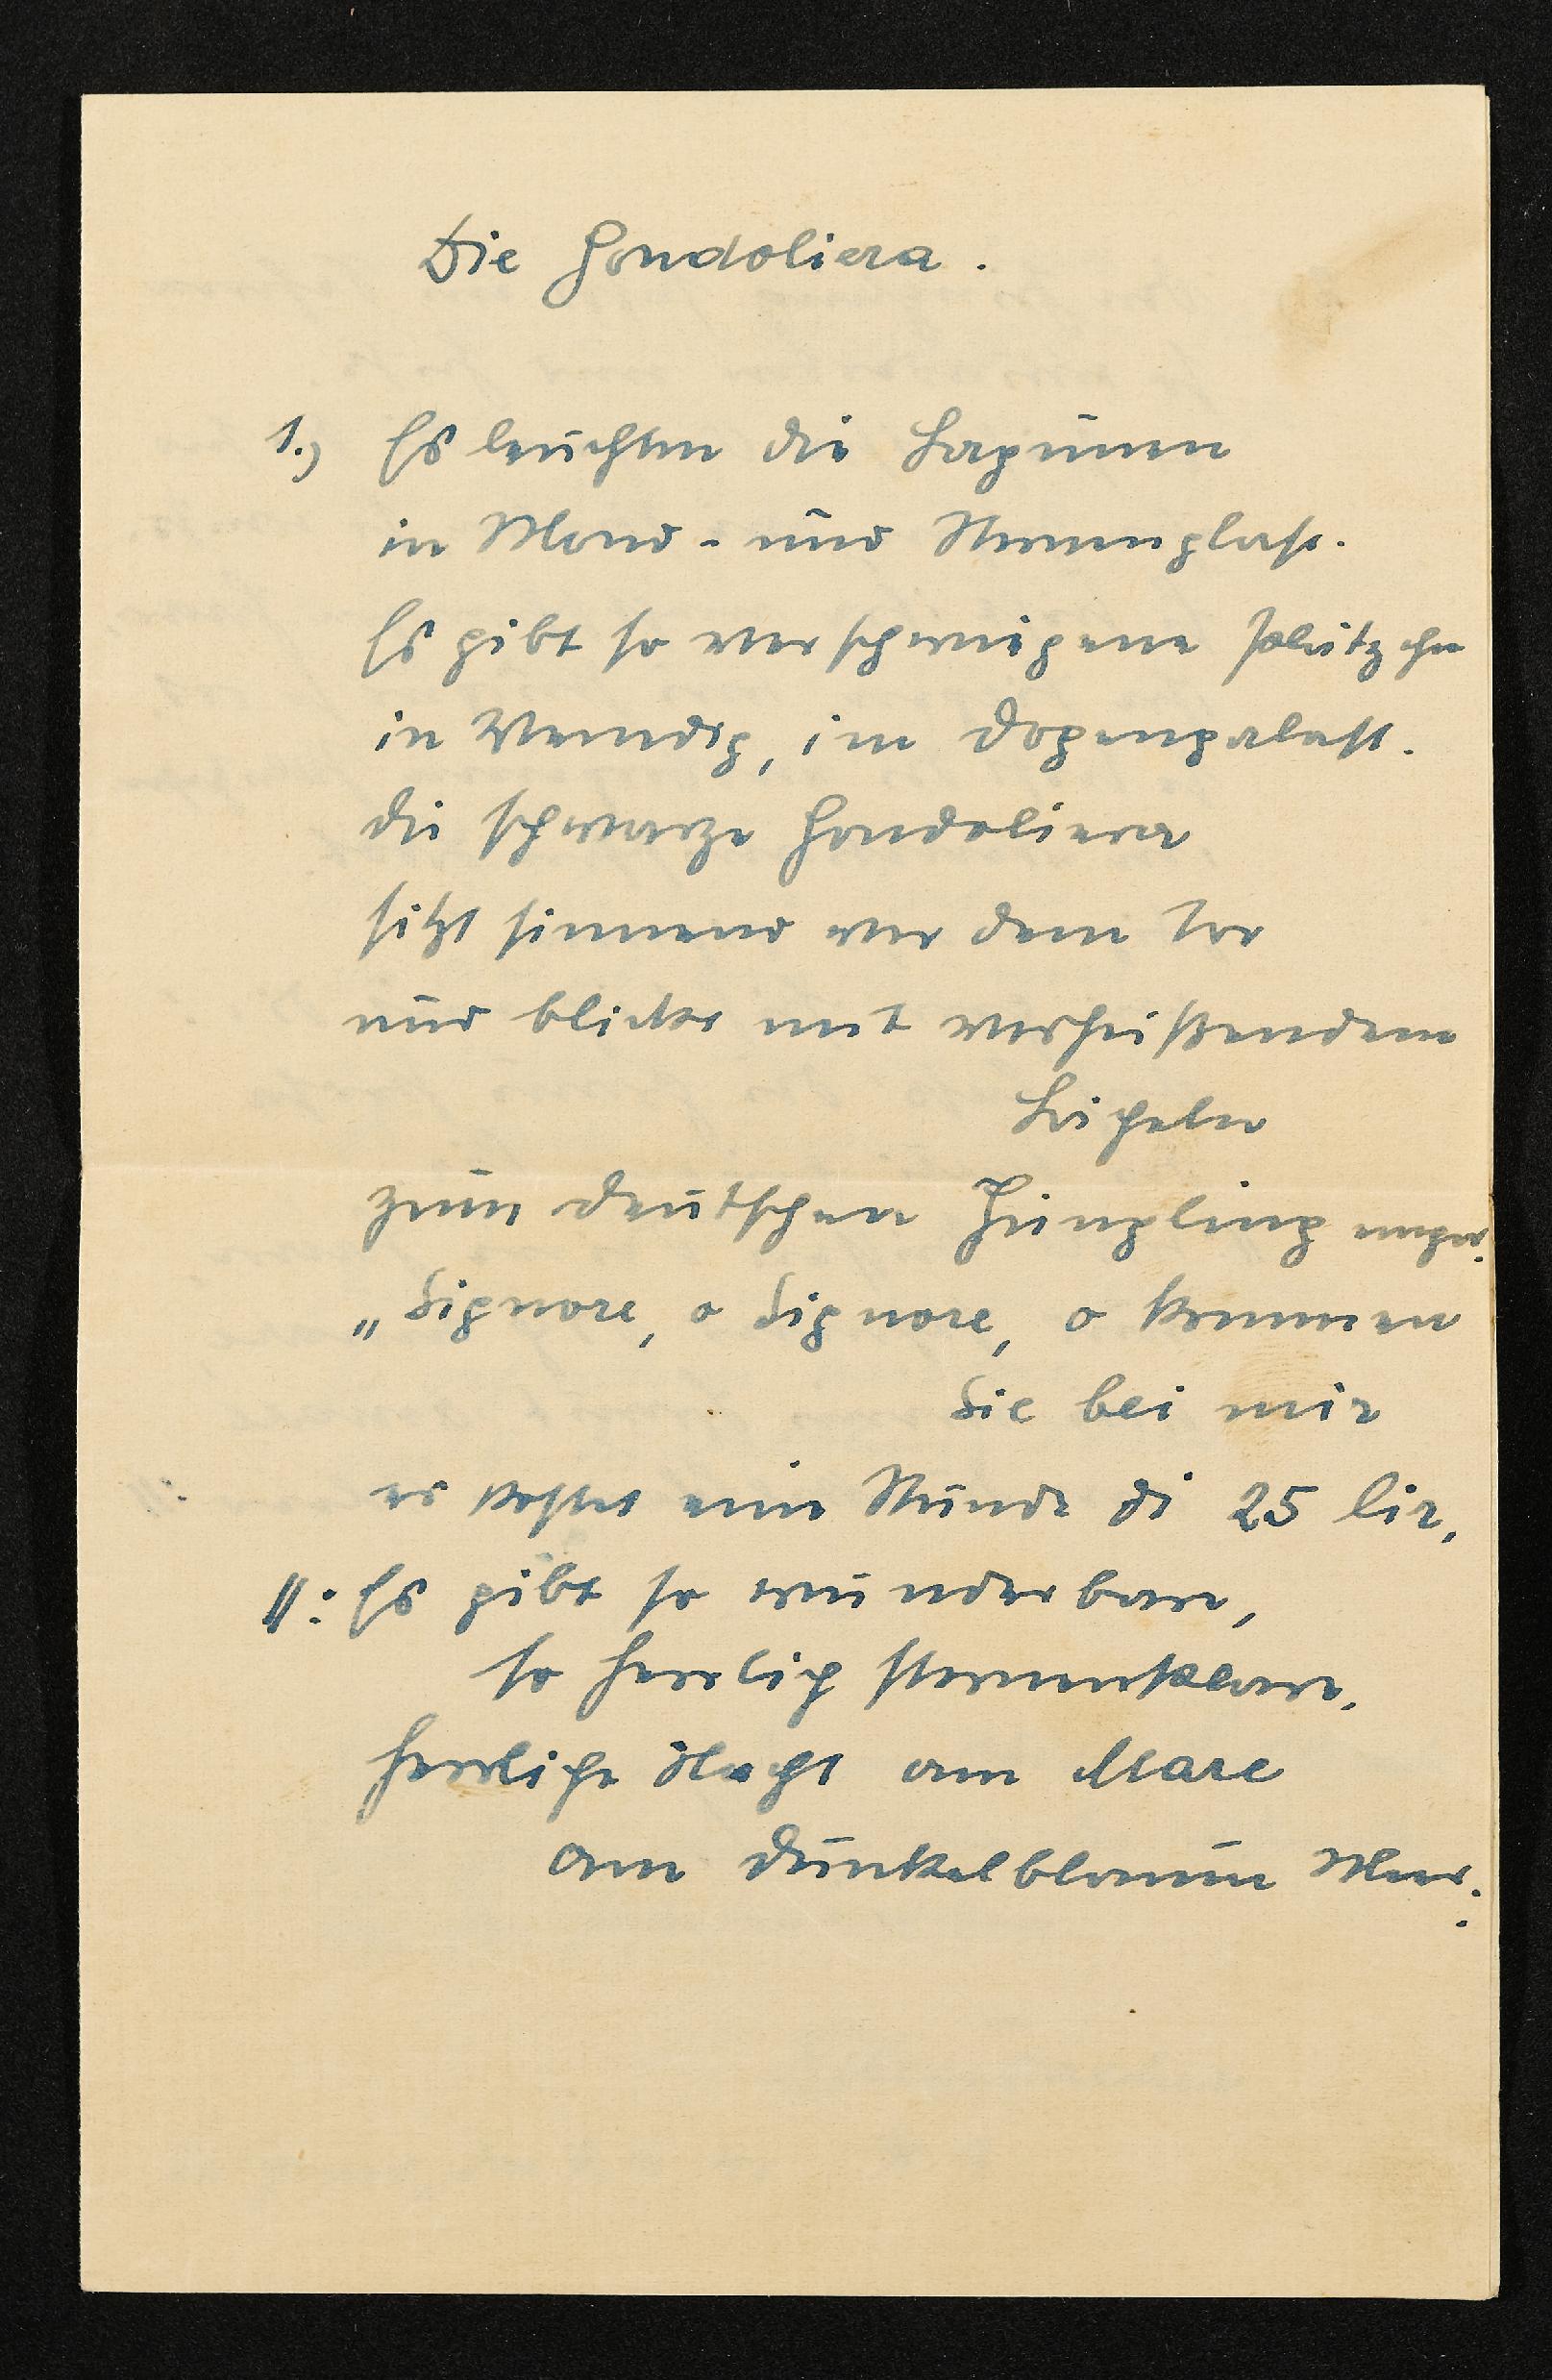 Die Gondoliera.
1.) Es leuchten die Lagunen
in Mond- und Sternenglast.
Es gibt so verschwiegene Plätzchen
in Venedig, im Dogenpalast.
Die schwarze Gondoliera
sitzt sinnend vor dem Tor
und blickt mit verheißendem
Lächeln
zum deutschen Jüngling empor.
„Signore, o Signore, o kommen
Sie bei mir
es kostet eine Stunde di 25 lir,
||: Es gibt so wunderbare,
so herrlich sternenklare,
herrliche Nacht am Mare
am dunkelblauen Meer.: